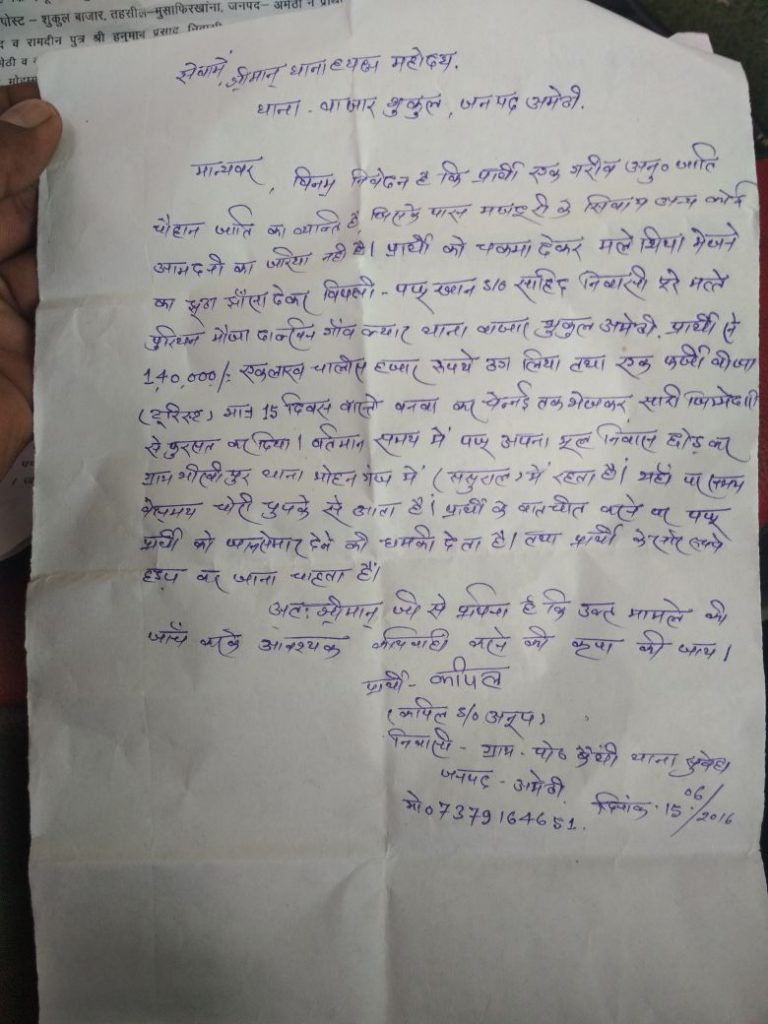 पोस्ट – शुकुल बाजार, तहसील–मुसाफिरखाना, जनपद– अमेठी ने प्रार्थी
द व रामदीन पुत्र श्री हनुमान प्रसाद निवासी
सेवामें, श्रीमान् थानाध्यक्ष महोदय.
थाना - बाजार शुकुल, जनपद अमेठी.
मान्यवर, विनम्र निवेदन है कि प्रार्थी एक गरीब अनु० जाति
चौहान जाति का व्यक्ति है, जिसके पास मजदूरी के सिवाय अन्य कोई
आमदनी का जरिया नहीं है। प्रार्थी को चकमा देकर मलेशिया भेजने
का झूठा झाँसा देकर विपक्षी - पप्पू खान s/o साहिद निवासी पूरे मल्ले
मौजा गाँव थाना बाजार शुकुल अमेठी. प्रार्थी से
1,40,000/- एकलाख चालीस हजार रूपये ठग लिया तथा एक फर्जी वीजा
(टूरिस्ट) मात्र 15 दिवस वास्ते बनवा कर चेन्नई तक भेजकर सारी जिम्मेदारी
से फुरसत कर दिया। वर्तमान समय में पप्पू अपना मूल निवास छोड़ कर
ग्राम थाना मोहन गंज में (ससुराल) में रहता है। यहाँ पर समय
बेसमय चोरी चुपके से आता है। प्रार्थी के बातचीत करने पर पप्पू
प्रार्थी को जानसेमार देने की धमकी देता है। तथा प्रार्थी के सारे रूपये
हड़प कर जाना चाहता है।
अतः श्रीमान् जी से प्रार्थना है कि उक्त मामले की
जाँच करके आवश्यक कार्यवाही करने की कृपा की जाय।
प्रार्थी - कपिल
(कपिल s/o अनूप)
निवासी - ग्राम - पो० थाना
जनपद - अमेठी.
मो० 07379164651. दिनांक. 15/06/2016